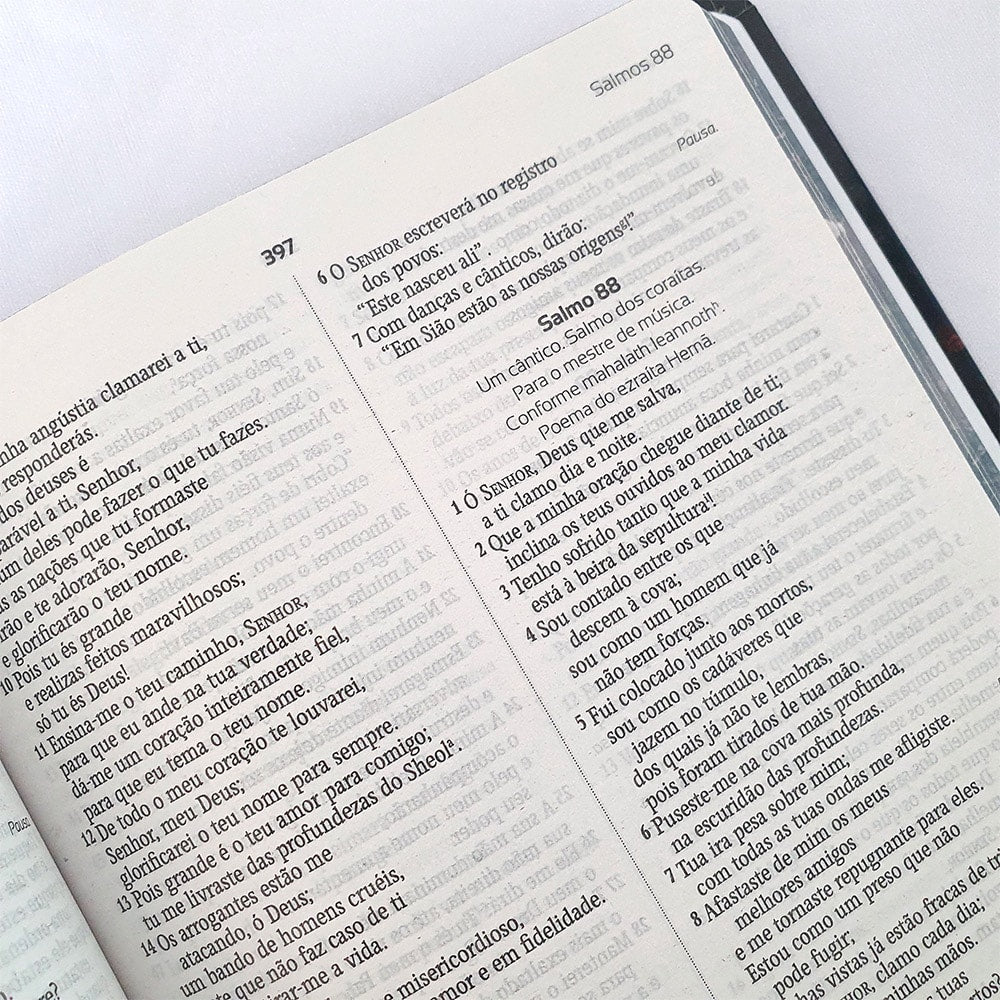 Salmos 88
397
nha angústia clamarei a ti,
responderás.
dos deuses é
parável a ti, Senhor,
um deles pode fazer o que tu fazes.
as nações que tu formaste
rão e te adorarão, Senhor,
e glorificarão o teu nome.
10 Pois tu és grande
e realizas feitos maravilhosos;
só tu és Deus!
11 Ensina-me o teu caminho, SENHOR,
para que eu ande na tua verdade;
dá-me um coração inteiramente fiel,
para que eu tema o teu nome.
12 De todo o meu coração te louvarei,
Senhor, meu Deus;
glorificarei o teu nome para sempre.
13 Pois grande é o teu amor para comigo;
tu me livraste das profundezas do Sheol.
14 Os arrogantes estão me
atacando, ó Deus;
um bando de homens cruéis,
te que não faz caso de ti
irar-me a vida.
e misericordioso,
amor e em fidelidade.
Pausa
re?
6 O SENHOR escreverá no registro
dos povos:
“Este nasceu ali”.
Pausa.
7 Com danças e cânticos, dirão:
“Em Sião estão as nossas origens g!”
Salmo 88
Um cântico. Salmo dos coraítas.
Para o mestre de música.
Conforme mahalath leannoth h.
Poema do ezraíta Hemã.
1 Ó SENHOR, Deus que me salva,
a ti clamo dia e noite.
2 Que a minha oração chegue diante de ti;
inclina os teus ouvidos ao meu clamor.
3 Tenho sofrido tanto que a minha vida
está à beira da sepultura i!
4 Sou contado entre os que
descem à cova;
sou como um homem que já
não tem forças.
5 Fui colocado junto aos mortos,
sou como os cadáveres que
jazem no túmulo,
dos quais já não te lembras,
pois foram tirados de tua mão.
6 Puseste-me na cova mais profunda,
na escuridão das profundezas.
7 Tua ira pesa sobre mim;
com todas as tuas ondas me afligiste.
8 Afastaste de mim os meus
melhores amigos
e me tornaste repugnante para eles.
Estou como um preso que não
pode fugir;
nhas vistas já estão fracas de tri
OR, clamo cada dia;
minhas mãos.